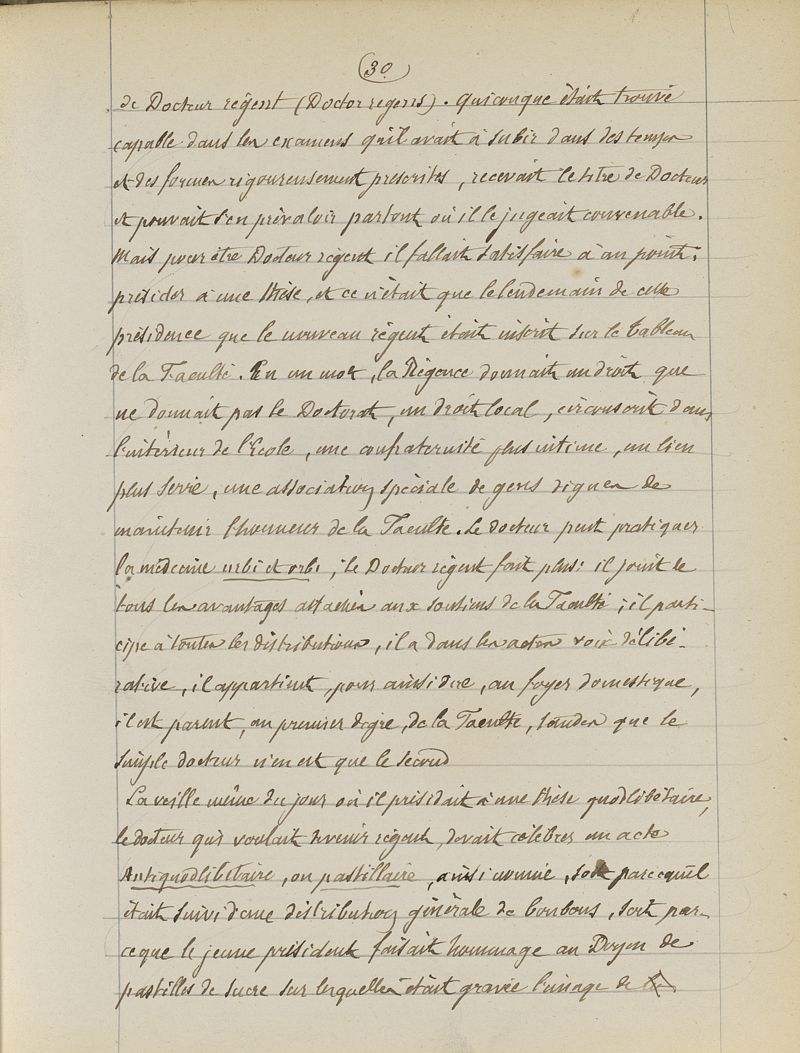 30
de Docteur régent (Doctor regens). Quiconque était trouvé
capable dans les examens qu'il avait à subir dans des temps
et des formes rigoureusement prescrites, recevait le titre de Docteur
et pouvait s'en prévaloir partout où il le jugeait convenable.
Mais pour être Docteur régent il fallait satisfaire à un point:
présider à une thèse, et ce n'était que le lendemain de cette
présidence que le nouveau régent était inscrit sur le Tableau
de la Faculté. En un mot, la Régence donnait un droit que
ne donnait pas le Doctorat, un droit local, circonscrit dans
l'intérieur de l'Ecole, une confraternité plus intime, un lien
plus serré, une association spéciale de gens dignes de
maintenir l'honneur de la Faculté. Le docteur peut pratiquer
la médecine urbi et orbi, le Docteur régent fait plus: il jouit de
tous les avantages attachés aux soutiens de la Faculté; il parti-
cipe à toutes les distributions, il a dans les actes voix délibé-
rative, il appartient, pour ainsi dire, au foyer domestique,
il est parent, au premier degré, de la Faculté, tandis que le
simple docteur n'en est que le second
La veille même du jour où il présidait à une thèse quodlibétaire,
le docteur qui voulait devenir régent, devait célébrer un acte
Antiquodlibétaire, ou pastillaire, ainsi nommé, soit parcequ'il
était suivi d'une distribution générale de bonbons, soit par-
ceque le jeune président faisait hommage au Doyen de
pastilles de sucre sur lesquelles était gravée l'image de